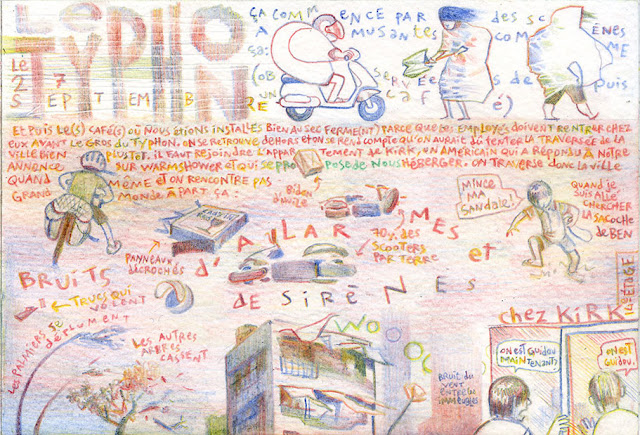 LE TYPHON
LE 27 SEPTEMBRE
ÇA COMMENCE PAR des scÈNES
AMUSAntes comME
ça:
(OBSERVÉEs de puis
UN café)
Et puis LE(s) CAFÉ(s) où NOUS étions INSTALLÉS BIEN AU SEC FERME(NT) PARCE QUE LES EMPLOYÉS doivent RENTRER CHEZ
EUX AVANT LE GROS du TYPHON. ON SE RETROUVE DEHORS Et ON SE REND COMPTE QU'ON AURAIT dû TENTER LA TRAVERSÉE DE LA
VILLE BIEN PLUS TÔT. IL FAUT REJOINDRE L'APPARTEMENT DE KIRK, UN AMÉRICAIN QUI A RÉPONDU À NOTRE
ANNONCE SUR WARMSHOWER Et QUI SE PROPOSE DE NOUS HÉBERGER. ON TRAVERSE donc LA VILLE
QUAND MÊME Et ON RENCONTRE PAS
GRAND MONDE, À PART ÇA:
Bidon d'huile
MINCE MA SANDALE!
QUAND JE SUIS ALLÉ CHERCHER LA SACOCHE de BEN
PANNEAUX DÉCROCHÉS
70% des SCOOTERS PAR TERRE
BRUITS d'ALARMES et
de SIRÈNES
TRUCS QUI VOLENT
LES PALMIERS SE déPLUMENT
LES AUTRES ARBRES CASSENT
WOOO
BRUIT du VENT ENTRE LES IMMEUBLES
chez KIRK
ÉTAGE
ON EST GUIDOU MAINTENANT?
ON EST GUIDOU.